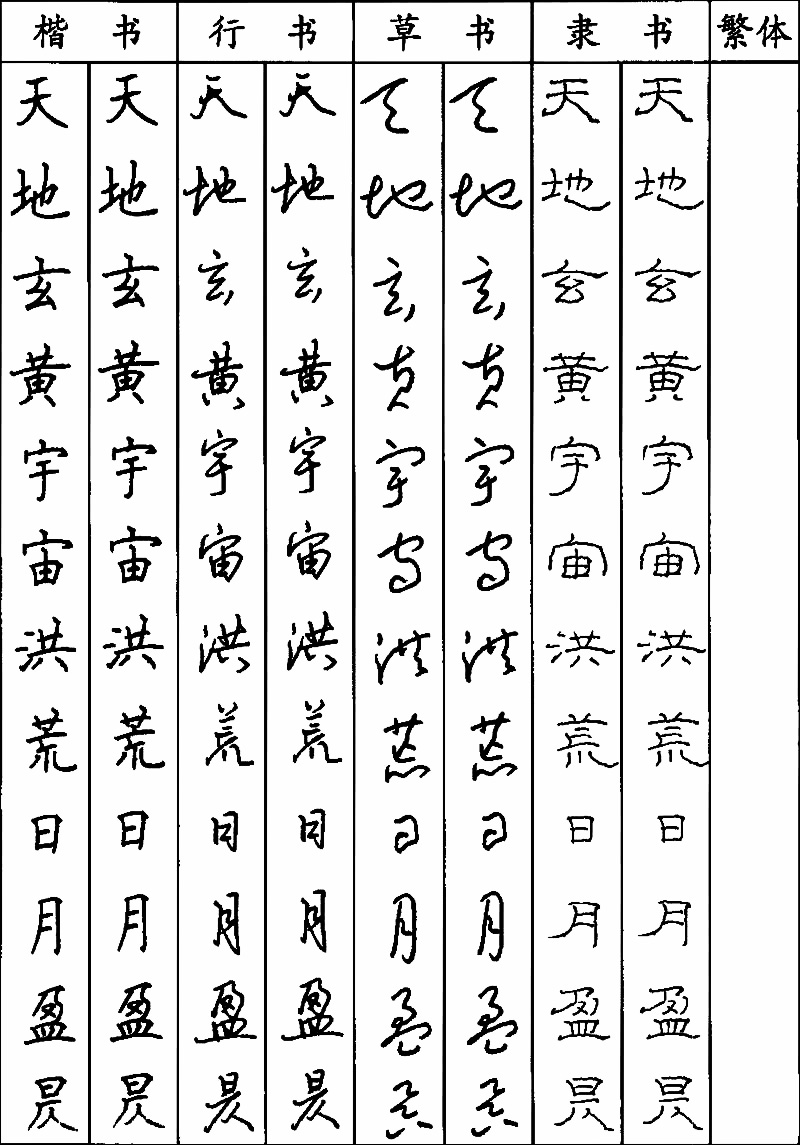 楷书 行书 草书 隶书 繁体
天 天 天 天 天 天 天 天
地 地 地 地 地 地 地 地
玄 玄 玄 玄 玄 玄 玄 玄
黄 黄 黄 黄 黄 黄 黄 黄
宇 宇 宇 宇 宇 宇 宇 宇
宙 宙 宙 宙 宙 宙 宙 宙
洪 洪 洪 洪 洪 洪 洪 洪
荒 荒 荒 荒 荒 荒 荒 荒
日 日 日 日 日 日 日 日
月 月 月 月 月 月 月 月
盈 盈 盈 盈 盈 盈 盈 盈
昃 昃 昃 昃 昃 昃 昃 昃